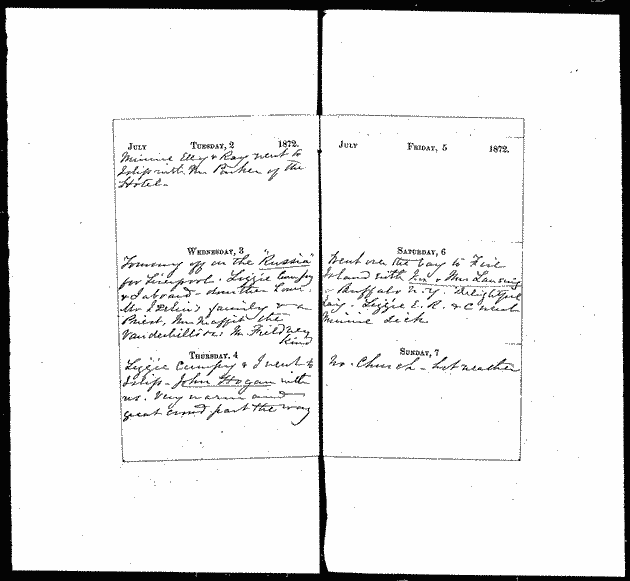 JULY TUESDAY, 2 1872.
Minnie Elly & Ray went to
Islip with Mr Parker of the
Hotel.
WEDNESDAY, 3
Tommy off on the "Russia"
for Liverpool. Lizzie Cumpy
& I aboard - down the
Mr family & a
Priest, Mr the
Vanderbilts Mr Field very
kind
THURSDAY, 4
Lizzie Cumpy & I went to
Islip - John Hogan with
us. Very warm and
great crowd part the way
JULY FRIDAY, 5 1872.
SATURDAY, 6
Went over the bay to Fire
Island with Mr & Mrs Lansing
Buffalo N.Y. delightful
day. Lizzie E. R. & C went
Minnie sick
SUNDAY, 7
No. Church - hot weather